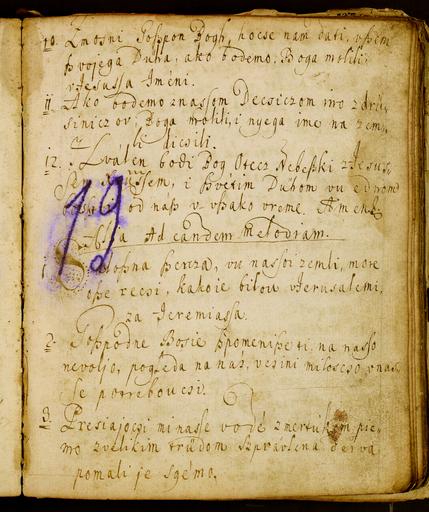 10. Zmosni Goßpon Bogh, hocse nam dati, vßem
ßvojega Duha, ako bodemo Boga molili,
vJesussa Imeni.
11. Ako bodemo znassom Decsiczom
siniczov, Boga molili, i nyega ime na zemlji
dicsili.
12. Hválen bodi Bog Otecz Nebeßki zJesus-
sem, i ßvétim Dühom vu
od naß v vßako vreme. Amen
19
Ad eandem melodiam.
1. ßercza, vu nassoi zemli, more
sze recsi, kakoie bilou vJerusalemi,
za Jeremiassa.
2. Goßpodne Bosie ßpomeniße ti, na nasso
nevoljo, pogleda na nas, vcsini miloscso vnas-
se potreboucsi.
3. Presiajocsi mi nasse vodé zmertúkom pie-
mo zvelikim trüdom
pomali je